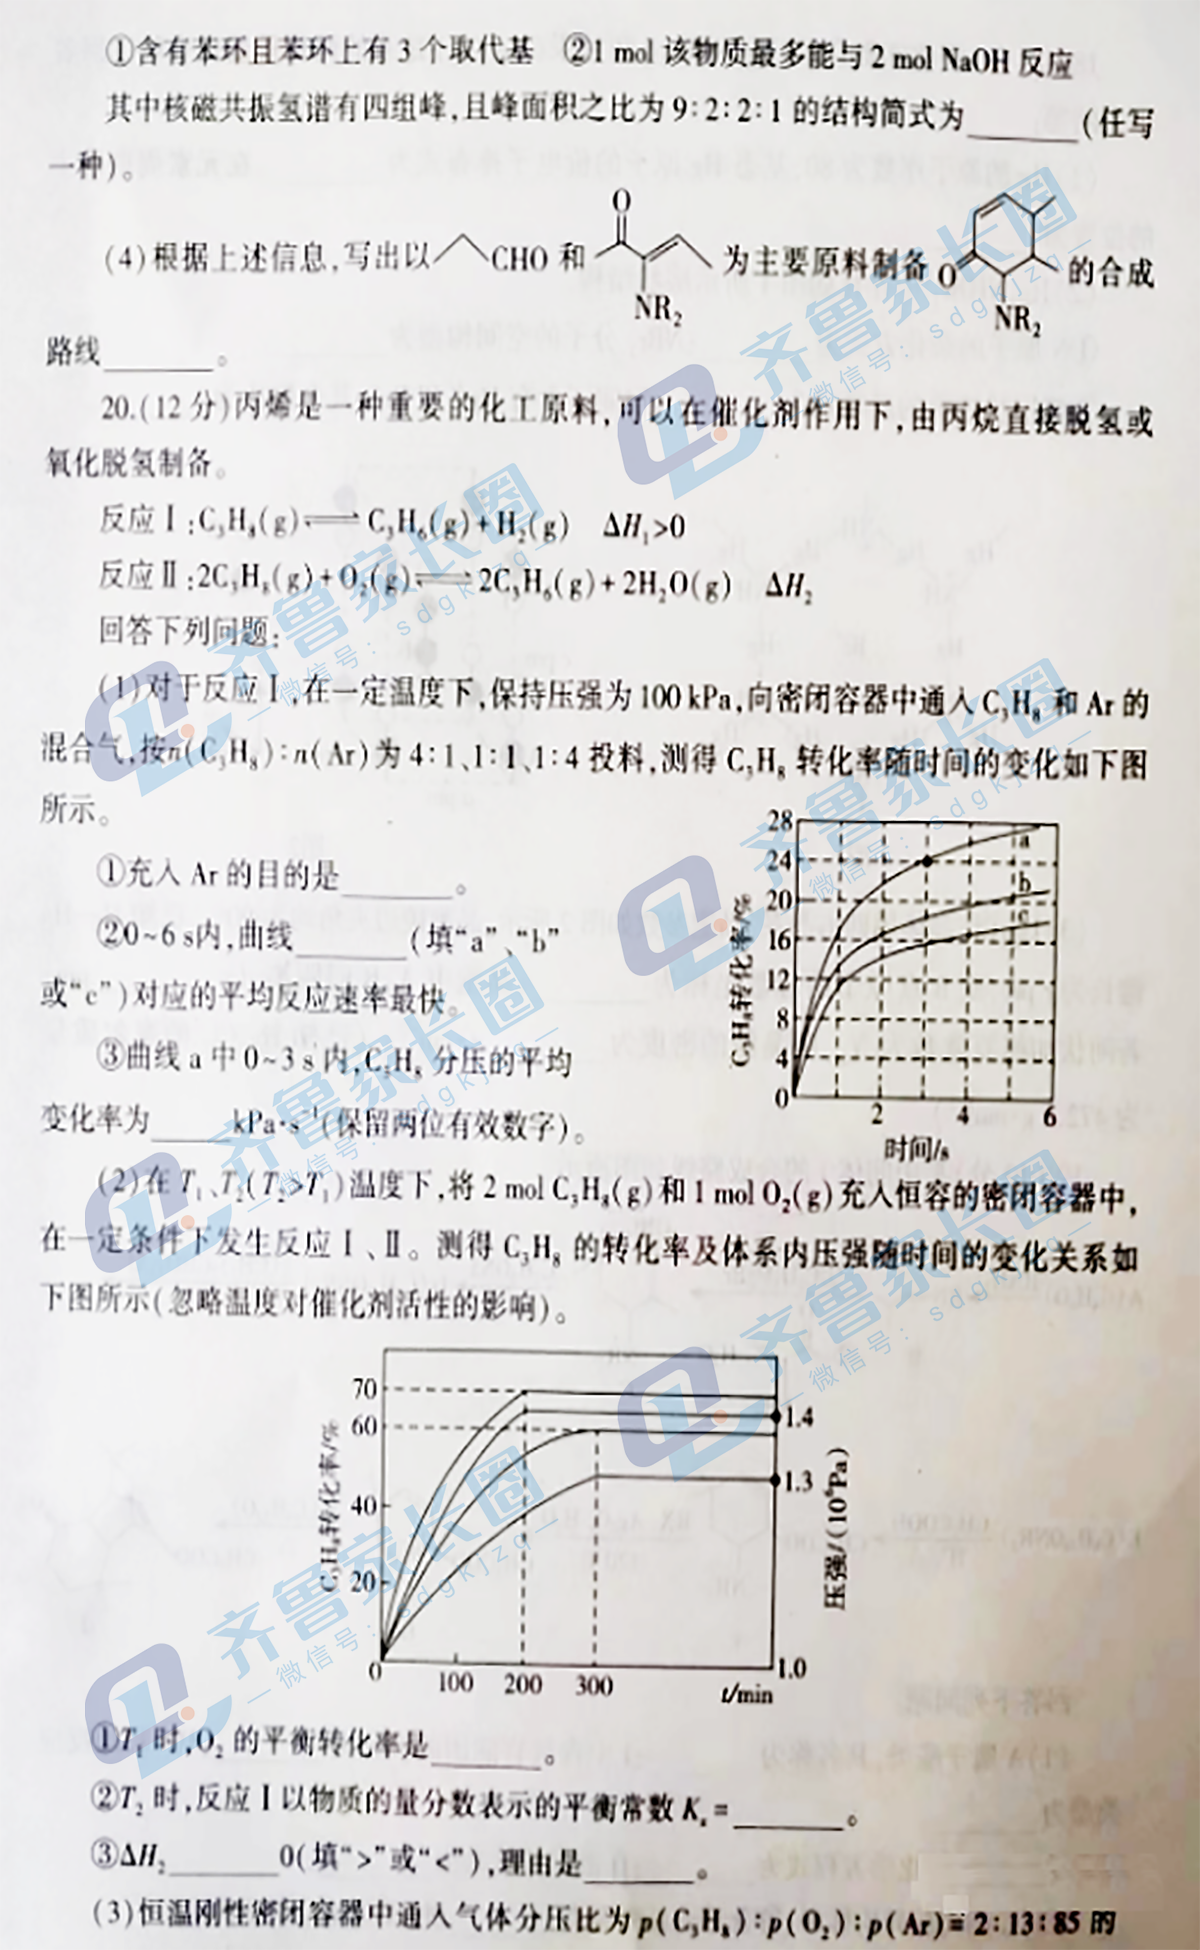 ①含有苯环且苯环上有3个取代基 ②1 mol 该物质最多能与2 mol NaOH 反应
其中核磁共振氢谱有四组峰,且峰面积之比为9:2:2:1的结构简式为______(任写
一种)。
(4)根据上述信息,写出以 CHO 和 O NR₂ 为主要原料制备 O NR₂ 的合成
路线______。
20.(12分)丙烯是一种重要的化工原料,可以在催化剂作用下,由丙烷直接脱氢或
氧化脱氢制备。
反应Ⅰ:C₃H₈(g)⇌C₃H₆(g)+H₂(g) ΔH₁>0
反应Ⅱ:2C₃H₈(g)+O₂(g)⇌2C₃H₆(g)+2H₂O(g) ΔH₂
回答下列问题:
(1)对于反应Ⅰ,在一定温度下,保持压强为100 kPa,向密闭容器中通入C₃H₈和Ar的
混合气,按n(C₃H₈):n(Ar)为4:1、1:1、1:4投料,测得C₃H₈转化率随时间的变化如下图
所示。
①充入Ar的目的是______。
②0~6 s内,曲线______(填“a”、“b”
或“c”)对应的平均反应速率最快。
③曲线a中0~3 s内,C₃H₈分压的平均
变化率为______kPa·s⁻¹(保留两位有效数字)。
C₃H₈转化率/%
28
24
20
16
12
8
4
0
2 4 6
时间/s
a
b
c
(2)在T₁、T₂(T₂>T₁)温度下,将2 mol C₃H₈(g)和1 mol O₂(g)充入恒容的密闭容器中,
在一定条件下发生反应Ⅰ、Ⅱ。测得C₃H₈的转化率及体系内压强随时间的变化关系如
下图所示(忽略温度对催化剂活性的影响)。
C₃H₈转化率/%
70
60
40
20
0
100 200 300 t/min
1.4
1.3
1.0
压强/(10⁶Pa)
①T₁时,O₂的平衡转化率是______。
②T₂时,反应Ⅰ以物质的量分数表示的平衡常数Kₓ=______。
③ΔH₂______0(填“>”或“<”),理由是______。
(3)恒温刚性密闭容器中通入气体分压比为p(C₃H₈):p(O₂):p(Ar)=2:13:85的
齐鲁家长圈
微信号:sdgkjzq